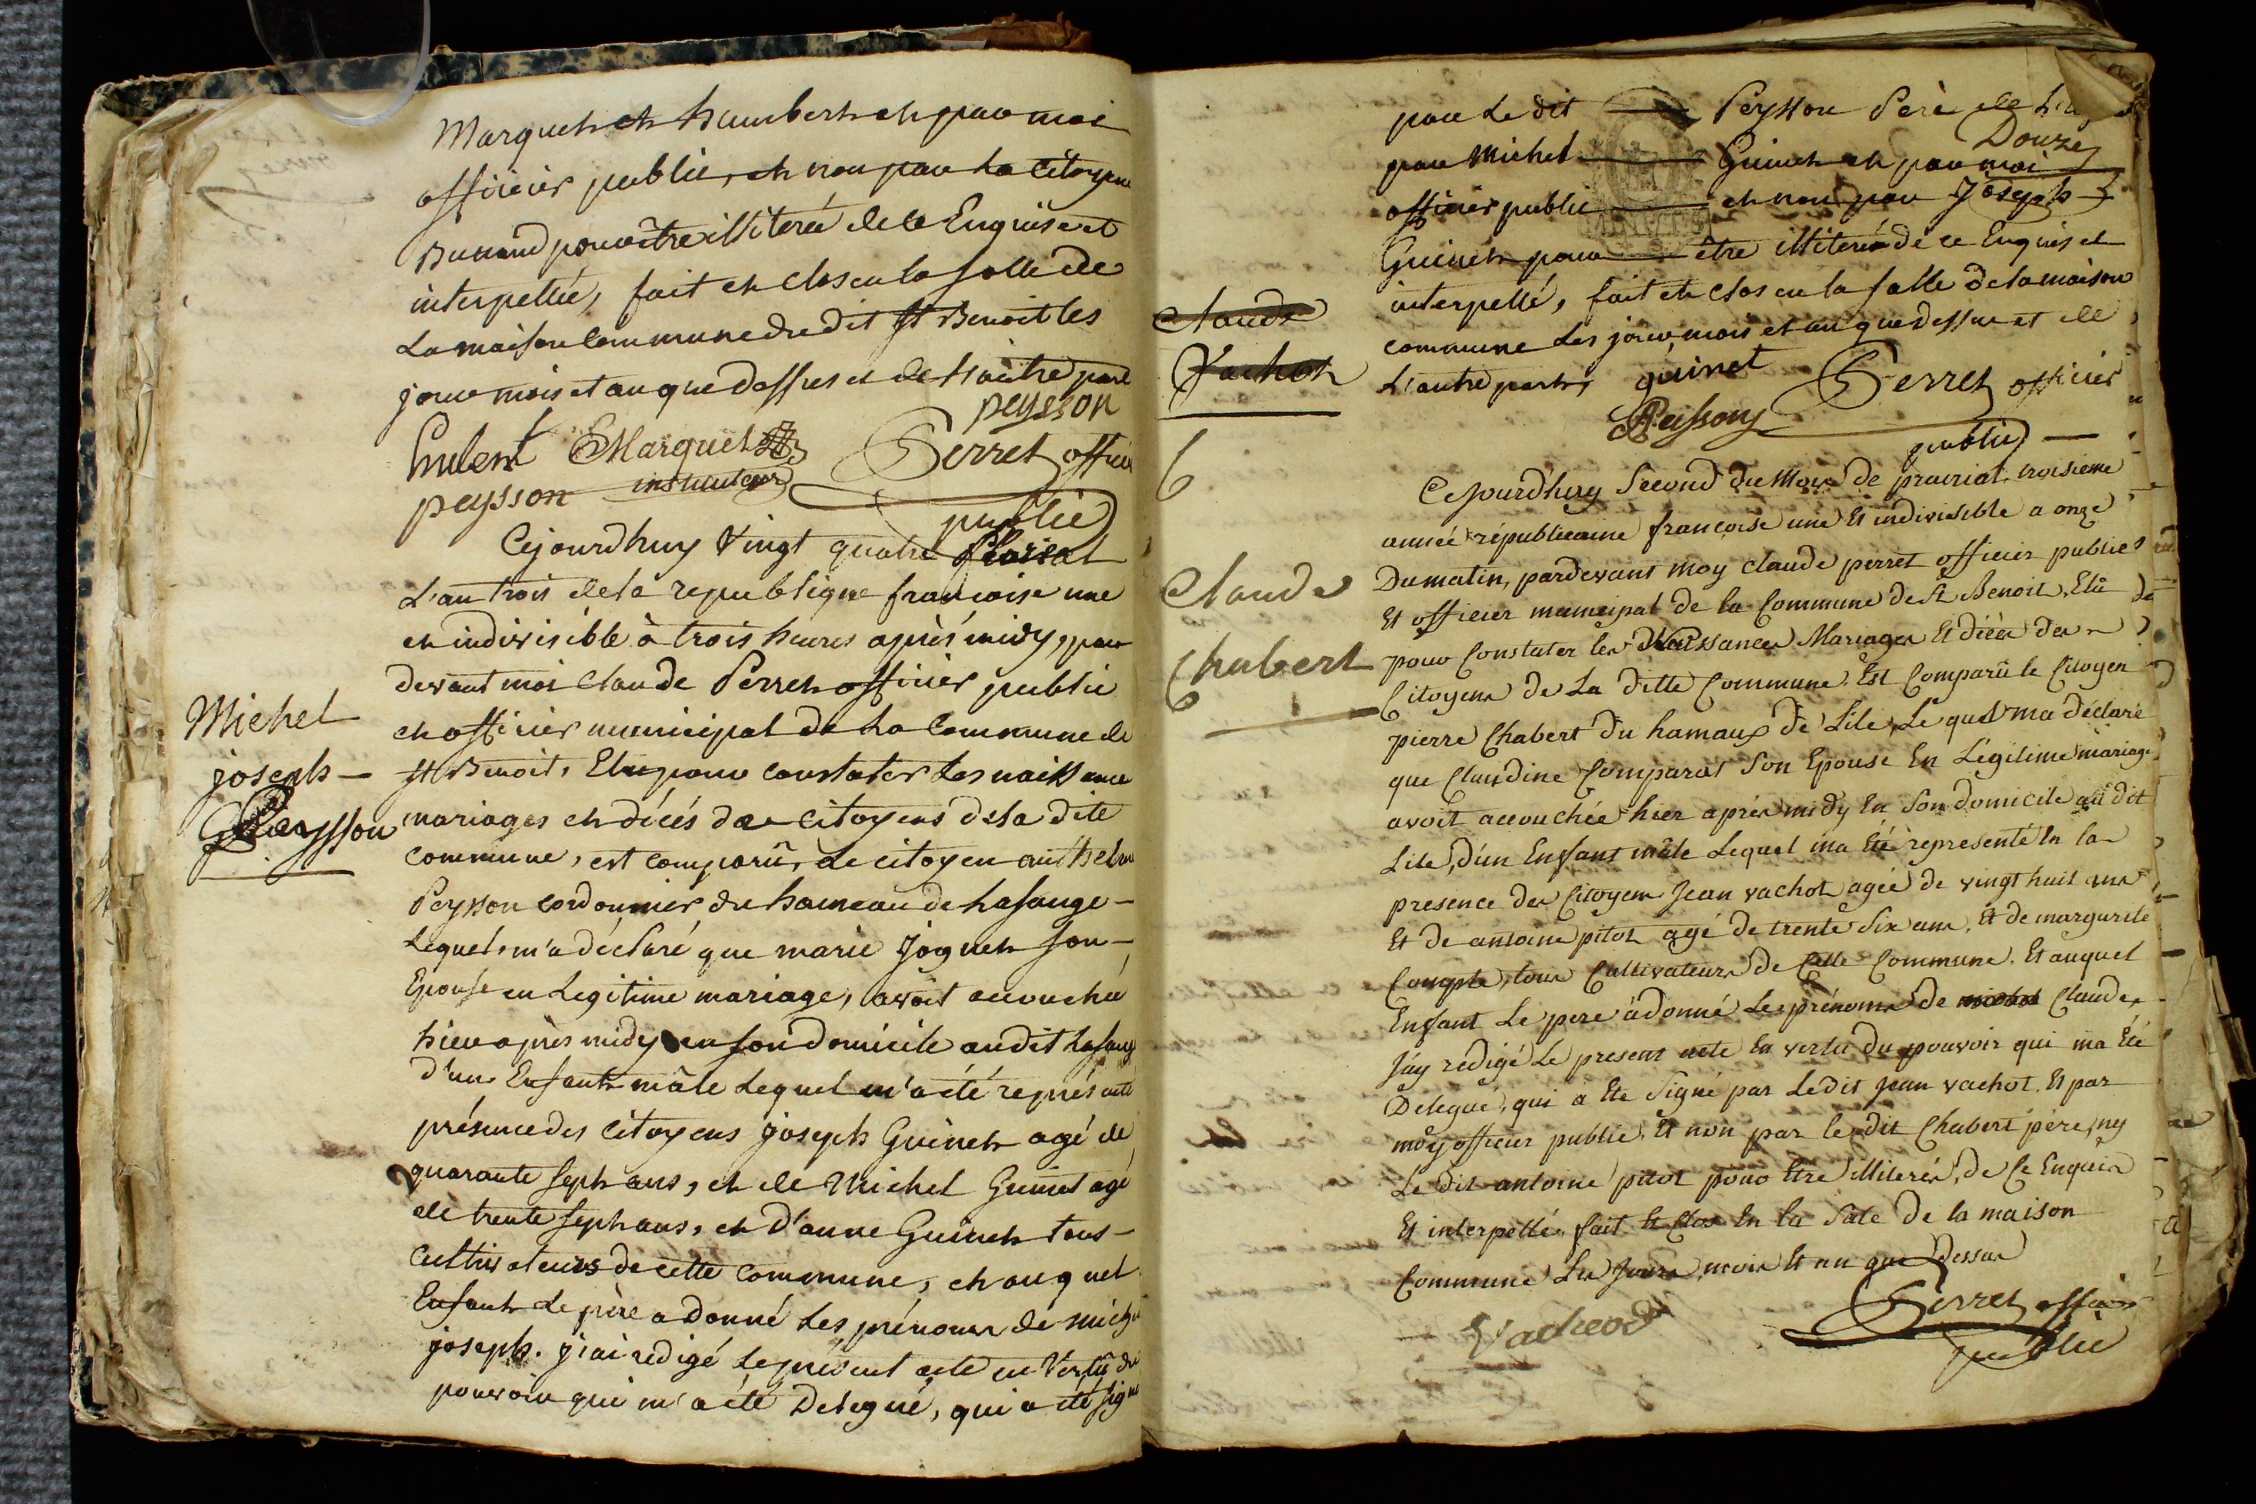 Marquet et humbert et par moi
officier public, et non par la citoyene
Bunand pour être illiterée de ce Enquise et
interpellée, fait et clos en la salle de
La maison Commune du dit St Benoit les
jour mois et an que dessus et de l'autre part
peysson
Marquet Perret officier
peysson instituteur
public
Cejourdhuy Vingt quatre floreal
L'an trois de la republique françoise une
et indivisible à trois heures après midy, par
devant moi Claude Perret officier public
et officier municipal de la Commune de
St Benoit, Elu pour constater les naissance
mariages et décés des citoyens de la dite
commune, est comparû, le citoyen anthelm
Peysson cordonnier du hameau de Lasauge –
Lequel, m'a déclaré que marie Joguet son –
Epouse en Legitime mariage, avoit accouchée
hier après midy en son domicile audit Lasauge
d'un Enfant mâle Lequel m'a été représenté
présence des citoyens joseph Guinet agé de
quarante sept ans, et de Michel Guinet agé
de trente sept ans, et d'anne Guinet tous –
cultivateurs de cette commune, et auquel
Enfant Le père a donné Les prénoms de michel
joseph. j'ai redigé Le présent acte en Vertû du
pouvoir qui m'a été Delegué, qui a été signé
Michel
joseph –
Peysson
par Le dit Peysson Père de
Douze
par Michel Guinet et par moi
officier public et non par Joseph
Guinet pour être illiteré de ce Enquis et
interpellé, fait et clos en la salle de la maison
commune Les jour, mois et an que dessus et de
L'autre part, guinet Perret officier
Peissony
public –
Claude
Vachot
6
Cejourdhuy Second du Mois de prairial troisieme
année républicaine françoise une Et indivisible a onze
Du matin, pardevant moy Claude perret officier public
Et officier municipal de la Commune de St Benoit, Elû
pour Constater les Naissances Mariages Et décès des
Citoyens de La ditte Commune. Est Comparû le Citoyen
pierre Chabert du hamaux de Lile, Le quel ma déclaré
que Claudine Comparat Son Epouse En Légitime mariage
avoit accouchée hier après midy En Son domicile audit
Lile, d'un Enfant mâle Lequel ma Eté representé En la
presence des Citoyens Jean vachot agée de vingt huit ans
Et de antoine pitot agé de trente Six ans, Et de margurite
Compte, tous Cultivateurs de Cette Commune. Et auquel
Enfant Le pere à donné Les prénoms de Claude,
J'ay rédigé Le present acte En vertu du pouvoir qui ma Eté
Delegué, qui a Ete Signé par Ledit Jean vachot. Et par
moy officier public, Et non par le dit Chabert père, ny
Le dit antoine pitot pour Etre illiterés, de Ce Enquis
Et interpellé, fait Et Clos En la Sale de la maison
Commune Les Jours, mois Et an que Dessus
Vachod Perret officier
public
Claude
Chabert